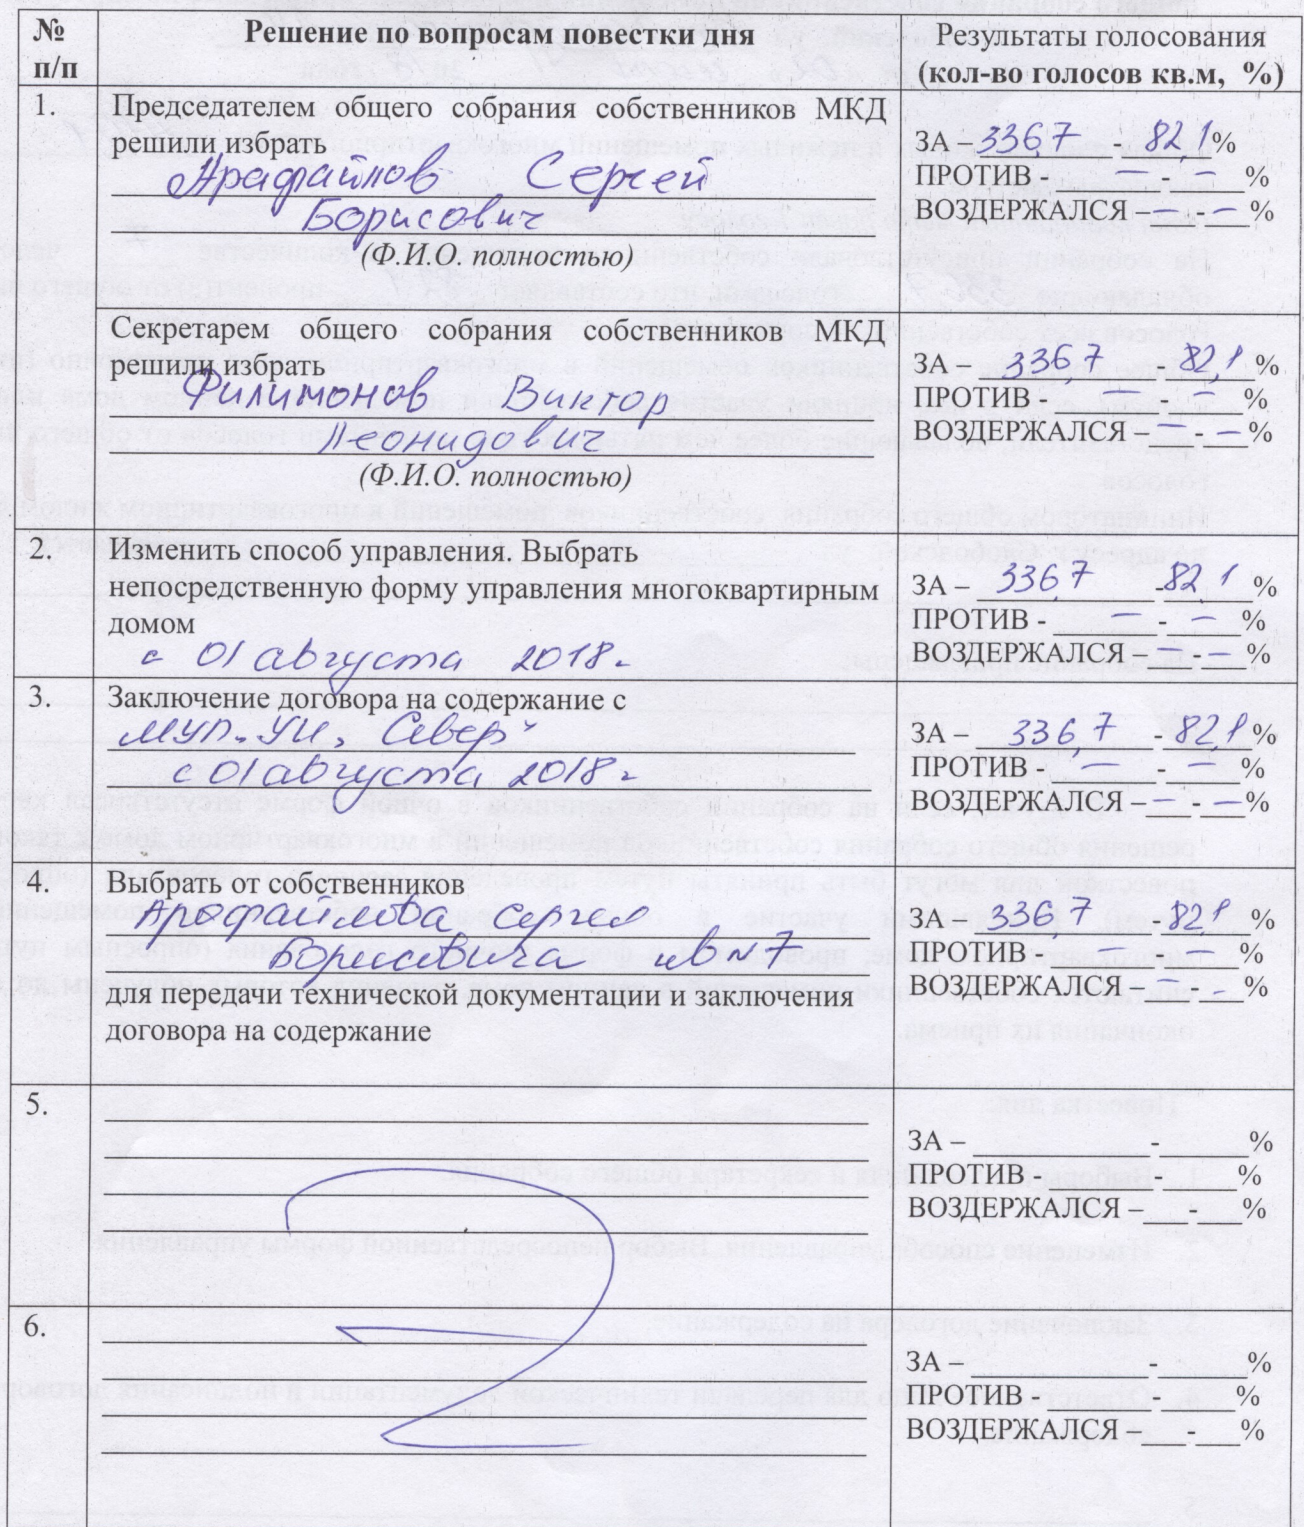 № п/п
Решение по вопросам повестки дня
Результаты голосования
(кол-во голосов кв.м, %)
1.
Председателем общего собрания собственников МКД
решили избрать
Сергей
Борисович
(Ф.И.О полностью)
ЗА – 336,7 82,1%
ПРОТИВ - — - — %
ВОЗДЕРЖАЛСЯ – — - — %
Секретарем общего собрания собственников МКД
решили избрать
Филимонов Виктор
Леонидович
(Ф.И.О. полностью)
ЗА – 336,7 82,1 %
ПРОТИВ - — - — %
ВОЗДЕРЖАЛСЯ – — - — %
2.
Изменить способ управления. Выбрать
непосредственную форму управления многоквартирным
домом
с 01 августа 2018г
ЗА – 336 7 - 82 1 %
ПРОТИВ - — - — %
ВОЗДЕРЖАЛСЯ – — - — %
3.
Заключение договора на содержание с
МУП Север"
с 01 августа 2018г
ЗА – 336 7 - 82,1 %
ПРОТИВ - — - — %
ВОЗДЕРЖАЛСЯ – — - — %
4.
Выбрать от собственников
Сергея
Борисовича кв №7
для передачи технической документации и заключения
договора на содержание
ЗА – 336,7 82,1 %
ПРОТИВ - — - — %
ВОЗДЕРЖАЛСЯ – — - — %
5.
ЗА – - %
ПРОТИВ - - %
ВОЗДЕРЖАЛСЯ – - %
6.
ЗА – - %
ПРОТИВ - - %
ВОЗДЕРЖАЛСЯ – - %